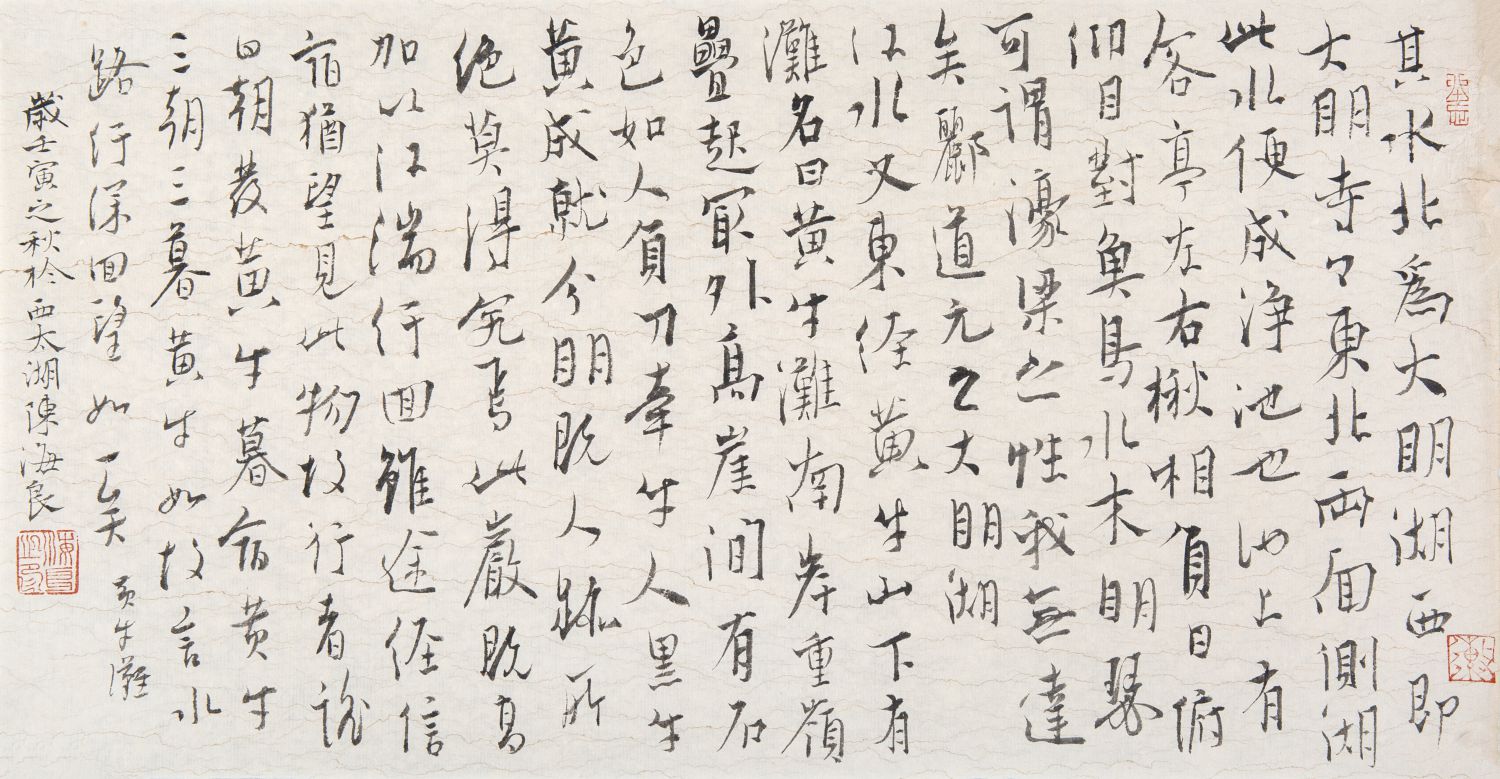 其水北爲大明湖西即
大明寺々東北兩面側湖
此水便成淨池也池上有
客亭左右楸相負日俯
仰目對魚鳥水木明瑟
可謂濠梁之性我無達
矣酈道元之大明湖
江水又東經黃牛山下有
灘名曰黃牛灘南岸重嶺
疊起最外高崖間有石
色如人負刀牽牛人黑牛
黃成就分明既人跡所
絕莫得究焉此巖既高
加以江湍紆回雖途經信
宿猶望見此物故行者謠
曰朝發黃牛暮宿黃牛
三朝三暮黃牛如故言水
路紆深回望如一矣 黃牛灘
歲壬寅之秋於西太湖陳海良